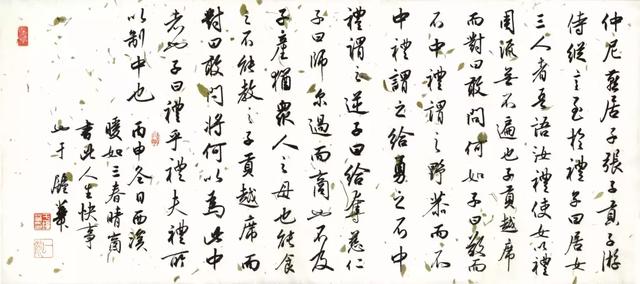 仲尼燕居子張子貢子游
侍縱言至於禮子曰居女
三人者吾語汝禮使女以禮
周流無不遍也子貢越席
而對曰敢問何如子曰敬而
不中禮謂之野恭而不
中禮謂之給勇之不中
禮謂之逆子曰給奪慈仁
子曰師尔過而商也不及
子產猶衆人之母也能食
之不能教之子貢越席而
對曰敢問將何以為此中
者也子曰禮乎禮夫禮所
以制中也 丙申冬日西溪
暖如三春晴窗
書此人生快事
也于華